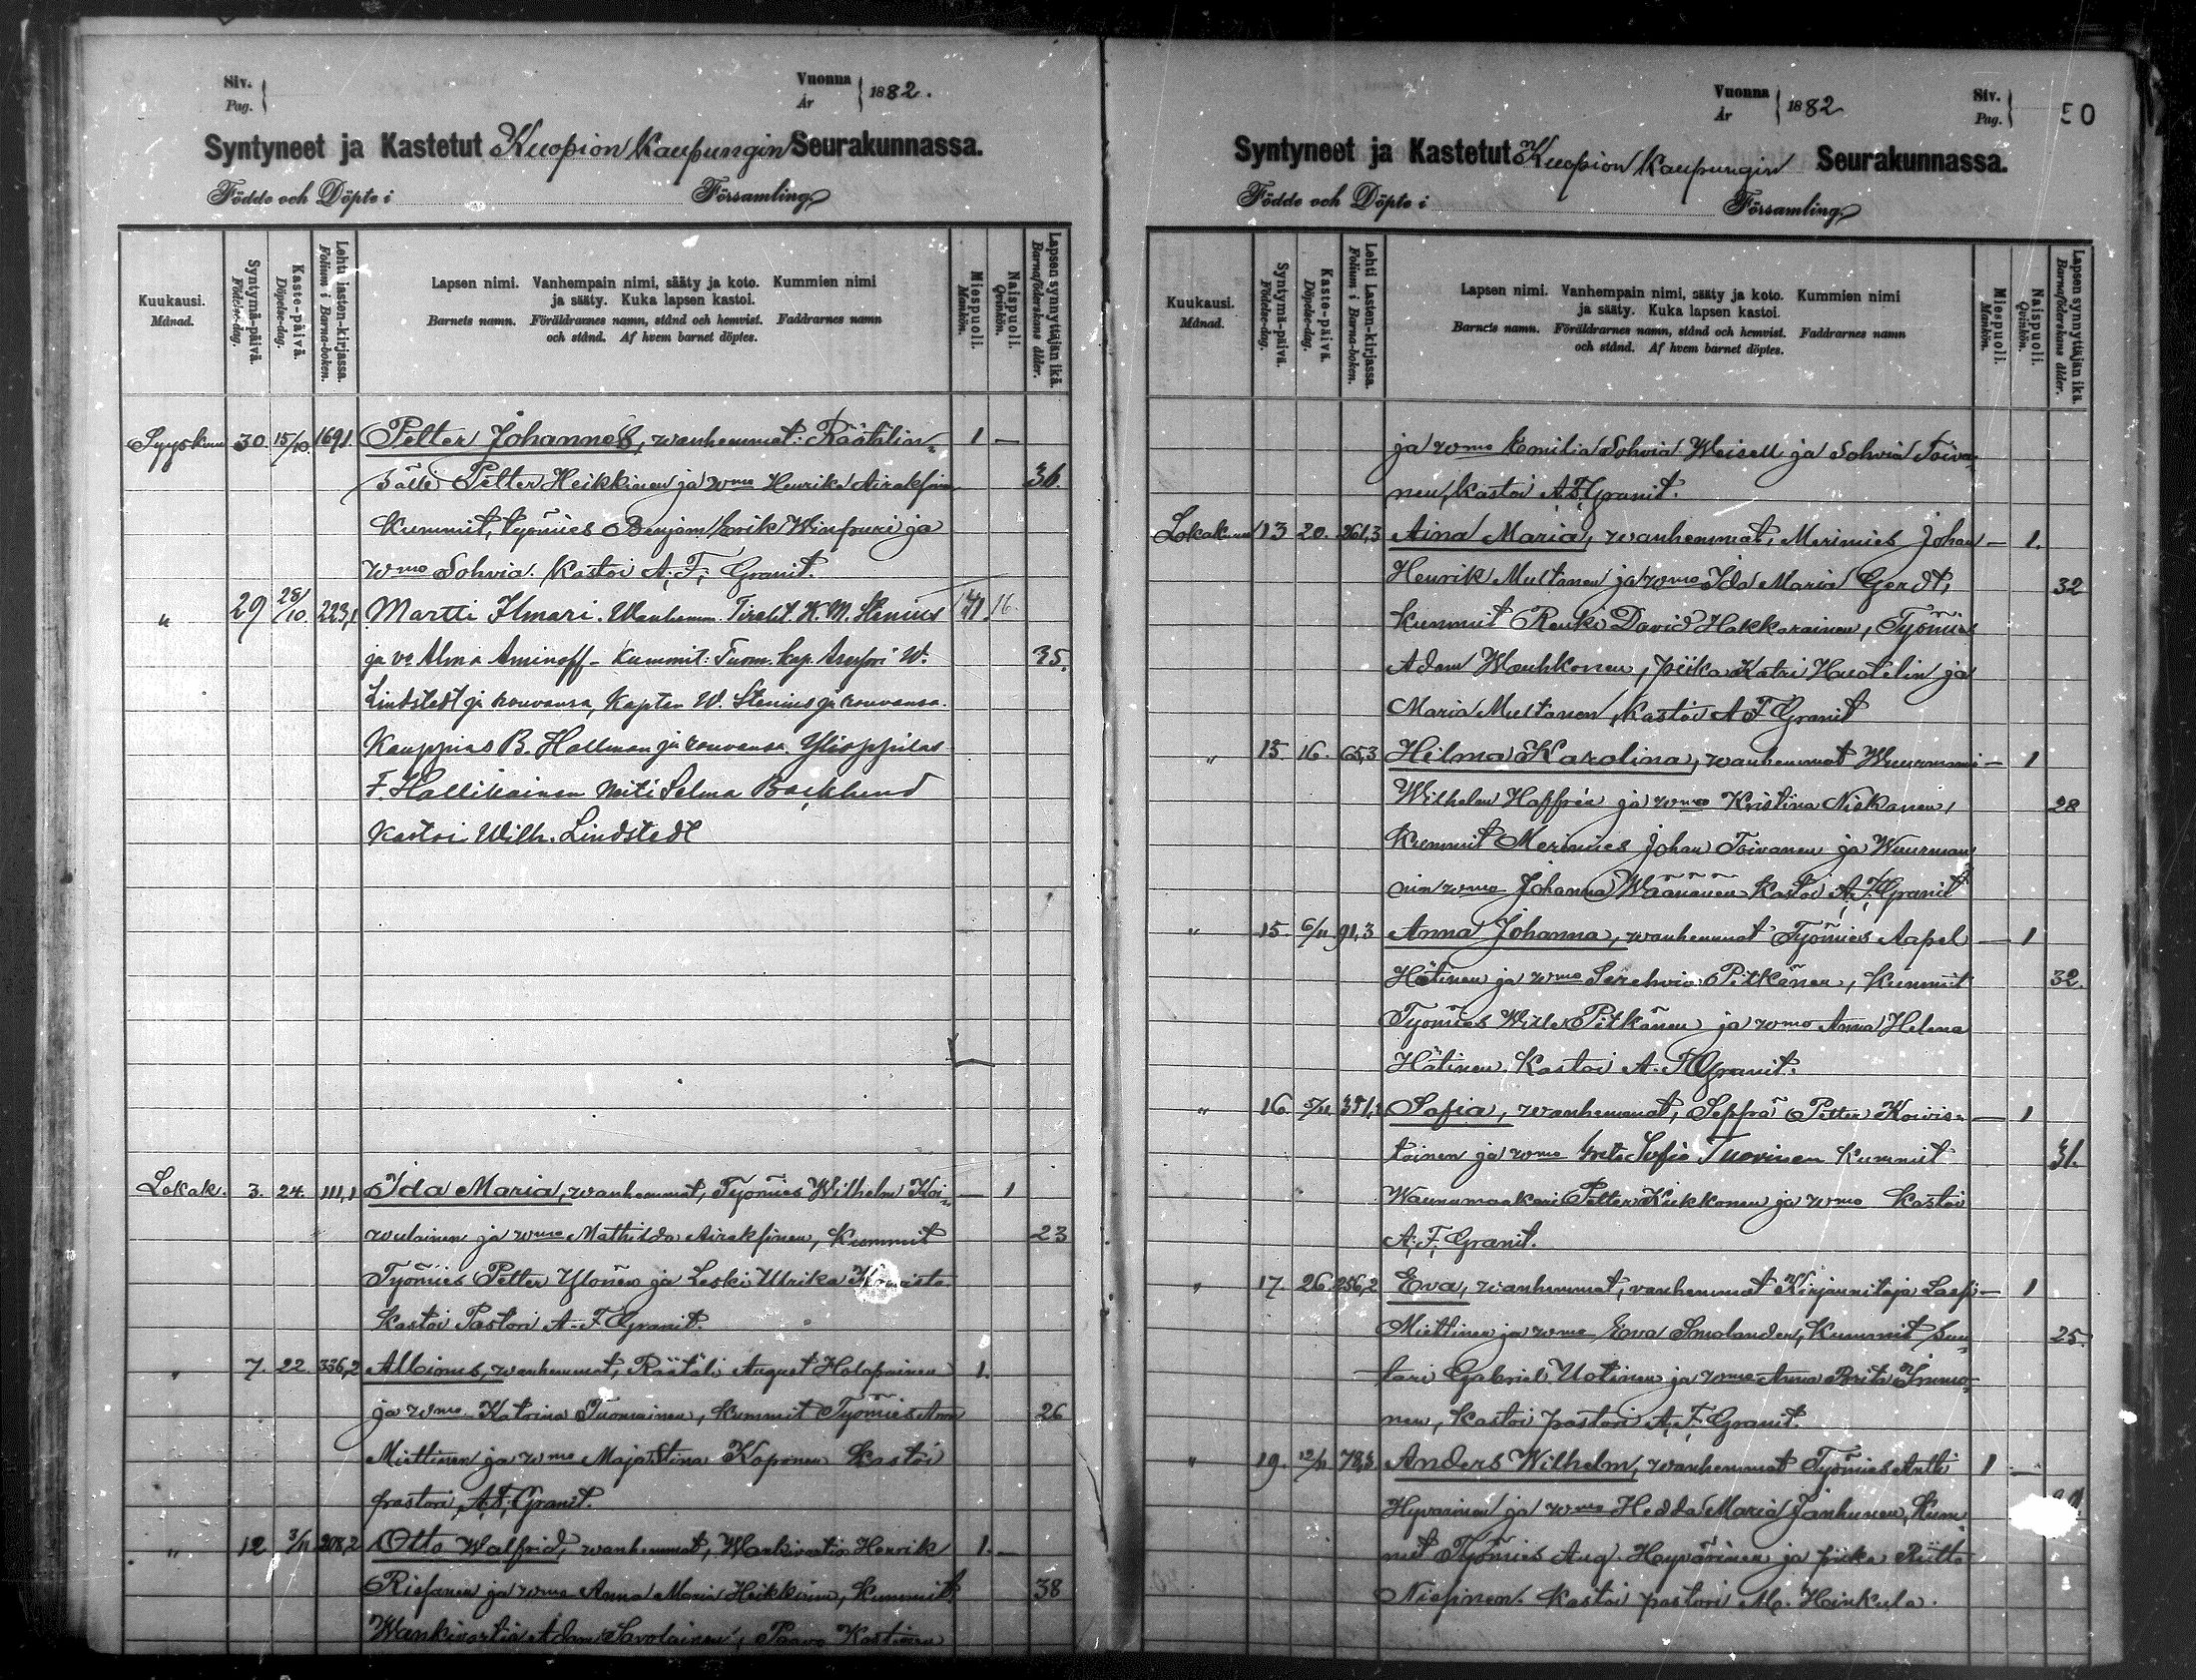 Siv.
Pag.
Vuonna
År
1882.
Syntyneet ja Kastetut Kuopion Kaupungin Seurakunnassa.
Födde och Döpte i Församling
Kuukausi.
Månad.
Syntymä-päivä.
Födelse-dag.
Kaste-päivä.
Döpelse-dag.
Lehti lasten-kirjassa.
Folium i Barna-boken.
Lapsen nimi. Vanhempain nimi, sääty ja koto. Kummien nimi
ja sääty. Kuka lapsen kastoi.
Barnets namn. Föräldrarnes namn, stånd och hemvist. Faddrarnes namn
och stånd. Af hvem barnet döptes.
Miespuoli.
Mankön.
Naispuoli.
Qvinkön.
Lapsen synnyttäjän ikä.
Barnaföderskans ålder.
Syyskuu 30 15/10. 169,1. Petter Johannes, wanhemmat: Räätälin- 1 —
sälli Petter Heikkinen ja wmo Henrika Airaksinen 36.
Kummit, työmies Benjam. Erik Winpuri ja
wmo Sohvia. Kastoi A. F. Granit.
" 29 28/10. 223,1 Martti Ilmari. Wanhemm. Tireht. K. M. Stenius
ja vo Alma Aminoff - Kummit: Tuom. kap. Asessori W. 35.
Lindstedt ja rouvansa, Kapten W. Stenius ja rouvansa.
Kauppias B. Hallman ja rouvansa. Ylioppilas
F. Hallikainen Neiti Selma Backlund
Kastoi Wilh. Lindstedt
Lokak. 3. 24. 111,1 Ida Maria, wanhemmat, Työmies Wilhelm Koi- — 1
wulainen ja wmo Mathilda Airaksinen, Kummit 23
Työmies Petter Ylönen ja Leski Ulrika
Kastoi Pastori A. F. Granit.
" 7. 22. 336,2 Albinus, wanhemmat, Räätäli August Holopainen 1.
ja wmo Katrina Tuomainen, kummit Työmies 26
Miettinen ja wmo Maja Stina Koponen Kastoi
pastori A. F. Granit.
" 12 3/11 208,2 Otto Walfrid, wanhemmat, Wankivartia Henrik 1. —
Rissanen ja wmo Anna Maria Heikkinen, Kummit, 38
Wankivartia Adam Savolainen, Paavo Kastinen
Vuonna
År
1882
Siv.
Pag.
50
Syntyneet ja Kastetut Kuopion Kaupungin Seurakunnassa.
Födde och Döpte i Församling
Kuukausi.
Månad.
Syntymä-päivä.
Födelse-dag.
Kaste-päivä.
Döpelse-dag.
Lehti Lasten-kirjassa.
Folium i Barna-boken.
Lapsen nimi. Vanhempain nimi, sääty ja koto. Kummien nimi
ja sääty. Kuka lapsen kastoi.
Barnets namn. Föräldrarnes namn, stånd och hemvist. Faddrarnes namn
och stånd. Af hvem barnet döptes.
Miespuoli.
Mankön.
Naispuoli.
Qvinkön.
Lapsen synnyttäjän ikä.
Barnaföderskans ålder.
ja wmo Emilia Sohvia Weisell ja Sohvia Toiva-
nen, kastoi A. F. Granit.
Lokakuu 13 20. 261,3 Aina Maria, wanhemmat, Merimies Johan — 1.
Henrik Multanen ja wmo Ida Maria Gerdt, 32
Kummit Renki David Hakkarainen, Työmies
Adam Wauhkonen, piika Katri Huotelin ja
Maria Multanen, Kastoi A F Granit
" 15. 16. 65,3 Hilma Karolina, wanhemmat Wuurmanni — 1
Wilhelm Haffrén ja wmo Kristina Niskanen, 28
Kummit Merimies Johan Toivanen ja Wuurman-
nin wmo Johanna Wäänänen Kastoi A. F. Granit
" 15. 6/11. 91,3 Anna Johanna, wanhemmat Työmies Aapel — 1
Hätinen ja wmo Serehvia Pitkänen, Kummit 32.
Työmies Wille Pitkänen ja wmo Anna Helena
Hätinen. Kastoi A. F Granit.
" 16. 5/11. Sofia, wanhemmat, Seppä Petter Koivis- — 1
toinen ja wmo Greta Sofia Tuovinen Kummit 31.
Waunumaakari Petter Kiikkonen ja wmo Kastoi
A. F. Granit.
" 17. 26. 256,2 Eva, wanhemmat, vanhemmat Kirjanitoja — 1
Miettinen ja wmo Eva Smolander, Kummit Suu- 25.
tari Gabriel Uotinen ja wmo Anna Brita Immo-
nen, Kastoi pastori A. F. Granit.
" 19. 12/11 78,3 Anders Wilhelm, wanhemmat Työmies Antti 1 —
Hyvärinen ja wmo Hedda Maria Janhunen, Kum-
mit Työmies Aug. Hayvärinen ja piika Riitta
Niepinen. Kastoi pastori M. Heinkula.